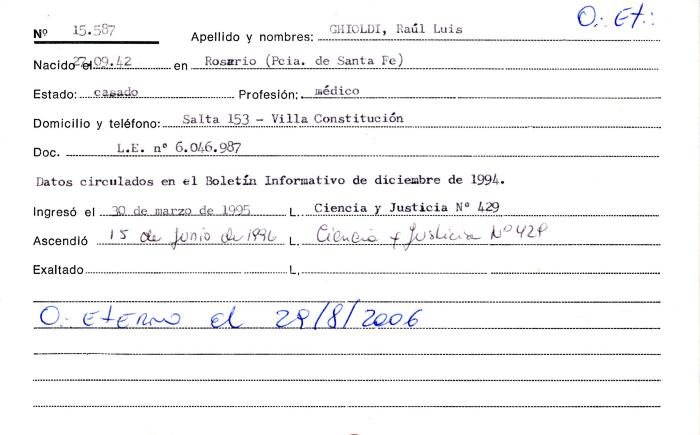 O. Et.:
Nº 15.587 Apellido y nombres: GHIOLDI, Raúl Luis
Nacido el 27.09.42 en Rosario (Pcia. de Santa Fe)
Estado: casado Profesión: médico
Domicilio y teléfono: Salta 153 - Villa Constitución
Doc. L.E. nº 6.046.987
Datos circulados en el Boletín Informativo de diciembre de 1994.
Ingresó el 30 de marzo de 1995 L. Ciencia y Justicia Nº 429
Ascendió 15 de Junio de 1996 L. Ciencia y Justicia Nº 429
Exaltado L.
O. ETERNO el 29/8/2006